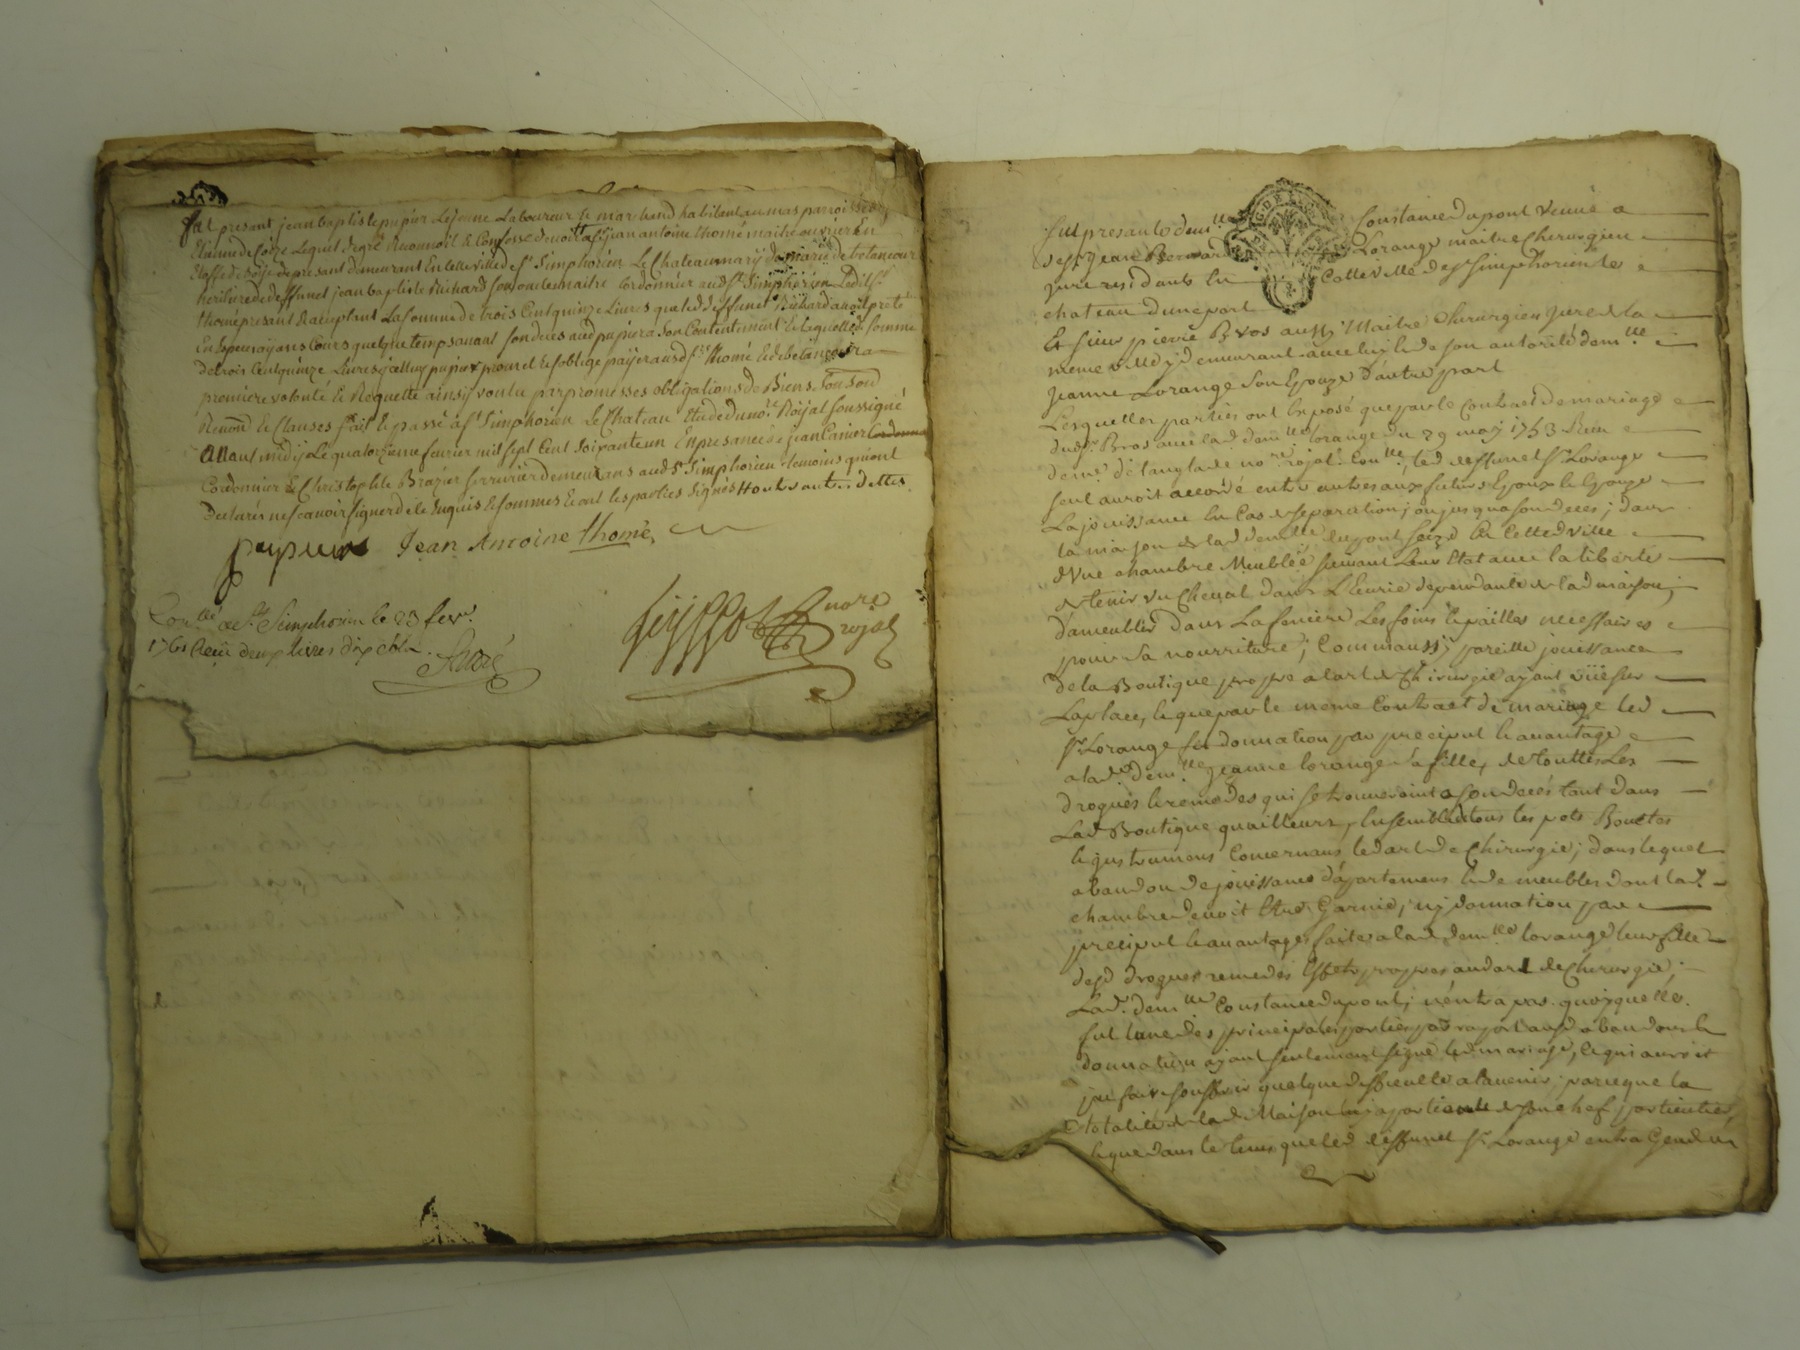 fut presant jean baptiste pupier Lejeune Laboureur et marchand habitant au mas parroisse de
Etienne de Coize Lequel degré Reconnoit et Confesse devoir a sr jean antoine thomé maitre ouvrier en
Etoffe de soye de presant demeurant En cette ville de st Simphorien Le Chateau mary de marie de betancour
heritiere de deffunct jean baptiste Richard son oncle maitre Cordonnier aud st Simphorien Ledit sr
thomé presant Raceptant La somme de trois Cent quinze Livres que led deffunct Richard avoit preté
En Espece ayans Cours quelque temp avant son deces aud pupier a son Contentement et laquelle d. somme
de trois Cent quinze Livres ycelluy pupier promet et s'oblige payer aud sr thomé et de betancour a
premiere volonté et Requette ainsy voulu par promesses obligations de Biens
Renond et Clauses fait et passé a st Simphorien Le Chateau Etude du nore Royal soussigné
avant midy Le quatorzieme fevrier mil sept Cent soixante un En presance de jean Canier Cordonnier
Cordonnier et Christophle Brazier serrurier demeurans aud st Simphorien temoins qui ont
Declarés ne scavoir signer de ce Enquis et sommés et ont les parties signés
pupier Jean Antoine thomé
nore
royal
Conllé a st Simphorien le 23 fevr
1761 Receu deux livres dix s
fut presante demlle Constance dupont veuve a
de sr jean Bernard Lorange maitre Chirurgien
juré residante en cette ville de st Simphorien le
chateau d'une part
Et sieur pierre Bros aussy Maitre Chirurgien juré de la
meme ville y demeurant avec luy et de son autorité demlle
jeanne Lorange son Epouze d'autre part
Lesquelles parties ont Exposé que par le Contract de mariage
dud sr Bros avec lad demlle Lorange du 29 may 1753 Receu
de me de langlade nore royal Conllé, led deffunct sr Lorange
seul auroit accordé entre autres aux futurs Epoux
La jouissance En Cas de separation; ou jusqua son deces; dans
la maison de lad demlle dupont scize En cette d ville
d'Une chambre Meublée suivant Leur Etat avec la liberté
de tenir un Cheval dans L'Ecurie dependante de lad maison;
dameubler dans La feniere Les foins et pailles necessaires
pour sa nourriture; Comm'aussy pareille jouissance
de la Boutique propre a lart de Chirurgie ayant vüe sur
La place, et que par le meme Contract de mariage led
sr Lorange fit donnation par preciput et avantage
a lad demlle jeanne Lorange sa fille, de touttes Les
drogues et remedes qui se trouveroint a son decés tant dans
Lad Boutique qu'ailleurs, Ensemble de tous les pots Bouetes
et jnstrumens Concernans led art de Chirurgie; dans lequel
abandon de jouissance d'apartemens et de meubles dont lad
chambre devoit Etre Garnie; ny donnation par
preciput et avantage faite a lad demlle Lorange leur fille
desd drogues remedes Effets propres aud art de Chirurgie;
Lad demlle Constance dupont; n'entra pas quoyque Elle
fut l'une des principales parties par raport aud abandon et
donnation ayant seulement signé led mariage, ce qui auroit
pu faire souffrir quelque difficulté a l'avenir; parce que la
totalité de lad Maison luy apartient de son chef particulier,
et que dans le tems que led deffunct sr Lorange entra Gendre